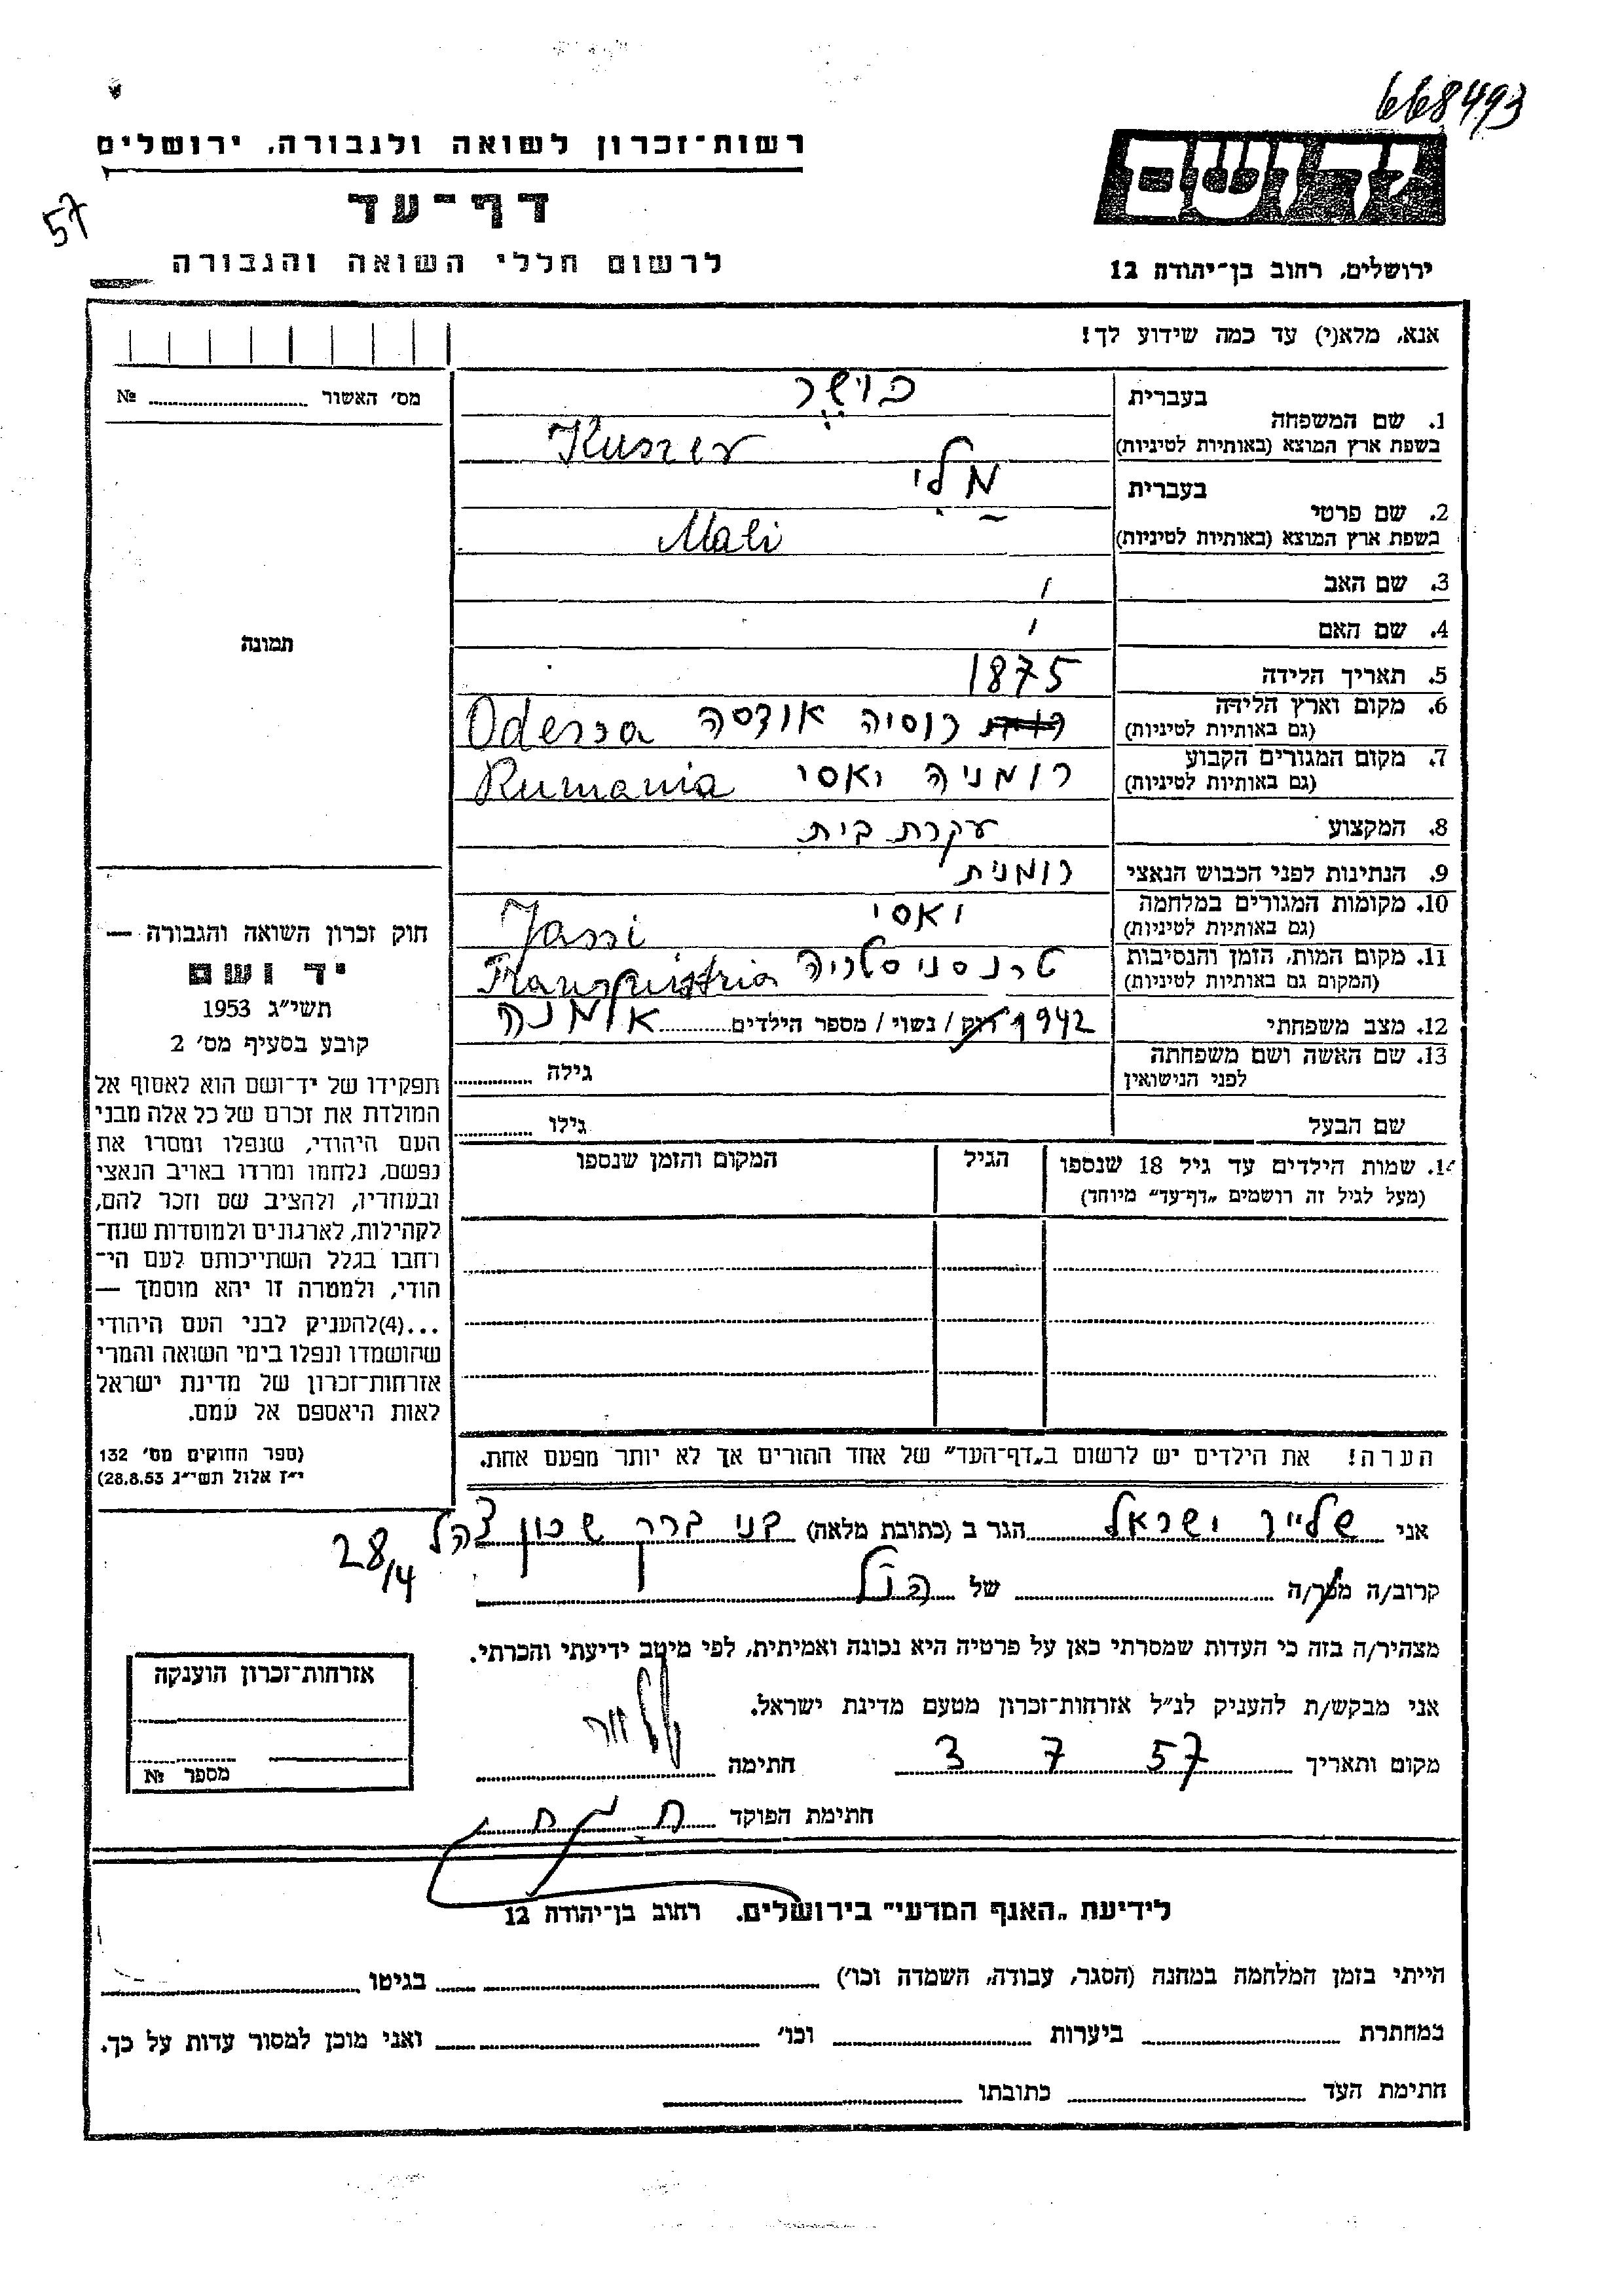 668493
רשות־זכרון לשואה ולגבורה, ירושלים
דף־עד
57
לרשום חללי השואה והגבורה
ירושלים, רחוב בן־יהודה 12
אנא, מלא(י) עד כמה שידוע לך!
מס' האשור № ............
1. שם המשפחה בעברית
בשפת ארץ המוצא (באותיות לטיניות)
Kuszer
2. שם פרטי בעברית מלי
בשפת ארץ המוצא (באותיות לטיניות) Mali
3. שם האב /
4. שם האם /
תמונה
5. תאריך הלידה 1875
6. מקום וארץ הלידה רוסיה אודסה Odessa
(גם באותיות לטיניות)
7. מקום המגורים הקבוע רומניה יאסי Rumania
(גם באותיות לטיניות)
8. המקצוע עקרת בית
9. הנתינות לפני הכבוש הנאצי רומנית
10. מקומות המגורים במלחמה יאסי Jassi
(גם באותיות לטיניות)
11. מקום המות, הזמן והנסיבות טרנסניסטריה
(המקום גם באותיות לטיניות)
12. מצב משפחתי 1942 רוק / נשוי / מספר הילדים ............ אלמנה
13. שם האשה ושם משפחתה גילה ............
לפני הנישואין
שם הבעל גילו ............
14. שמות הילדים עד גיל 18 שנספו הגיל המקום והזמן שנספו
(מעל לגיל זה רושמים „דף־עד” מיוחד)
הערה! את הילדים יש לרשום ב„דף־העד” של אחד ההורים אך לא יותר מפעם אחת.
חוק זכרון השואה והגבורה —
יד ושם
תשי"ג 1953
קובע בסעיף מס' 2
תפקידו של יד־ושם הוא לאסוף אל
המולדת את זכרם של כל אלה מבני
העם היהודי, שנפלו ומסרו את
נפשם, נלחמו ומרדו באויב הנאצי
ובעוזריו, ולהציב שם וזכר להם,
לקהילות, לארגונים ולמוסדות שנח־
רחבו בגלל השתייכותם לעם הי־
הודי, ולמטרה זו יהא מוסמך —
...(4)להעניק לבני העם היהודי
שהושמדו ונפלו בימי השואה והמרי
אזרחות־זכרון של מדינת ישראל
לאות היאספם אל עמם.
(ספר החוקים מס' 132
י"ז אלול תשי"ג 28.8.53)
אני שלייר ישראל הגר ב (כתובת מלאה) בני ברק שכון צהל
28/4
קרוב/ה מכר/ה של הנ"ל
מצהיר/ה בזה כי העדות שמסרתי כאן על פרטיה היא נכונה ואמיתית, לפי מיטב ידיעתי והכרתי.
אני מבקש/ת להעניק לנ"ל אזרחות־זכרון מטעם מדינת ישראל.
מקום ותאריך 3 7 57 חתימה
חתימת הפוקד
אזרחות־זכרון הוענקה
מספר №
לידיעת „האגף המדעי” בירושלים, רחוב בן־יהודה 12
הייתי בזמן המלחמה במחנה (הסגר, עבודה, השמדה וכו') ............ בגיטו ............
במחתרת ............ ביערות ............ וכו' ............ ואני מוכן למסור עדות על כך.
חתימת העד ............ כתובתו ............